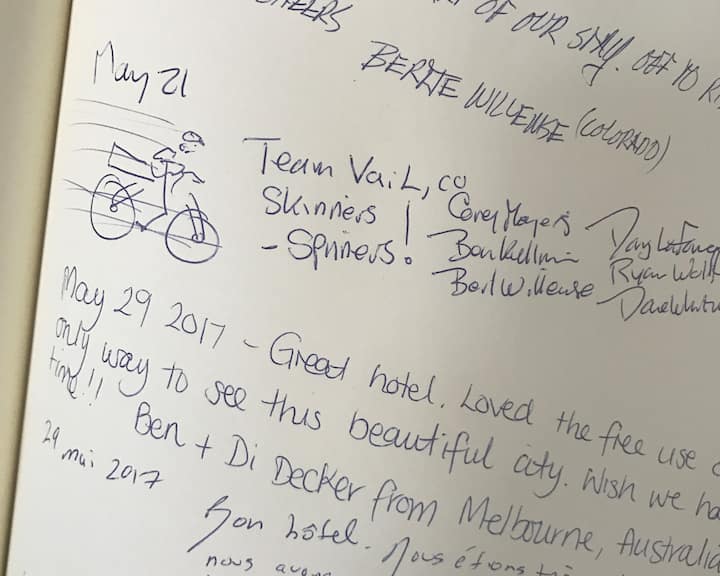 OF OUR STAY. OFF TO
BERTIE WILLEMSE (COLORADO)
May 21
Team Vail, CO
Skinners
- Spinners!
Corey Mayers
Ben
Willemse
Ryan
May 29 2017 - Great hotel. Loved the free use
only way to see this beautiful city. Wish we
time!!
Ben + Di Decker from Melbourne, Australia
29 mai 2017
Bon hôtel. Nous étions
nous